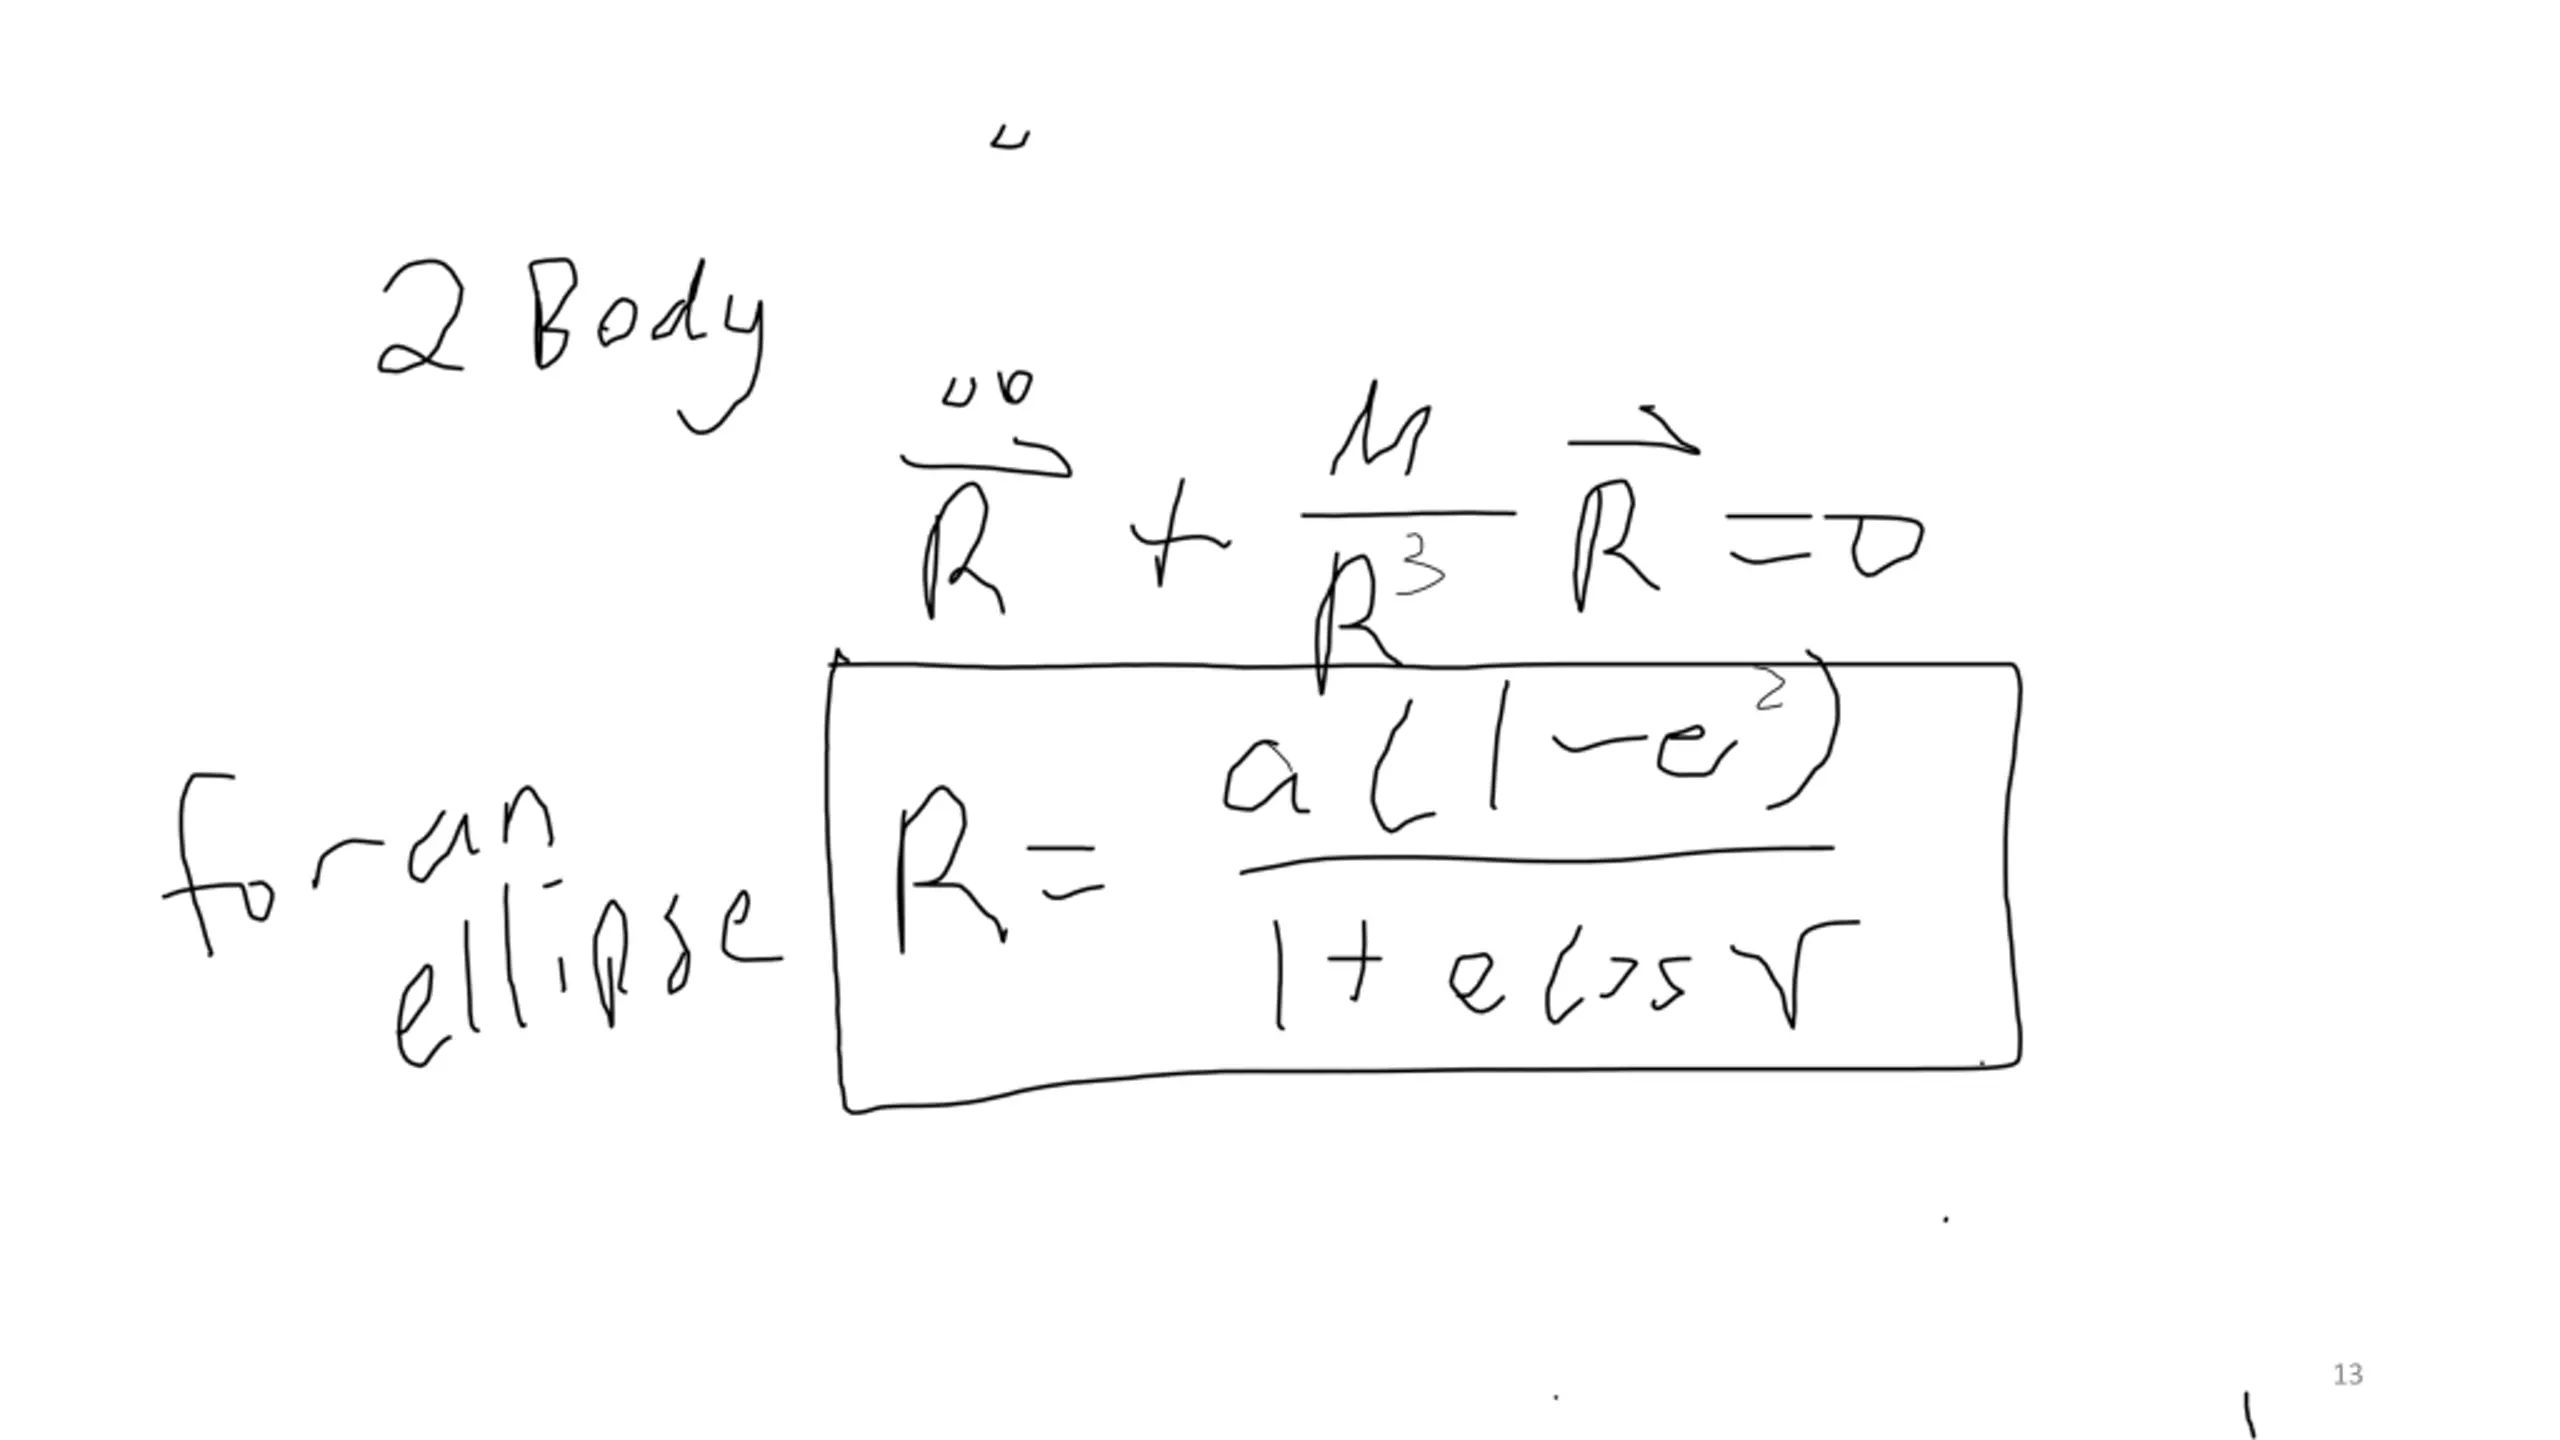 2 Body
R⃗̈ + μ/R³ R⃗ = 0
for an
ellipse
R = a(1-e²) / 1 + e cos ν
13